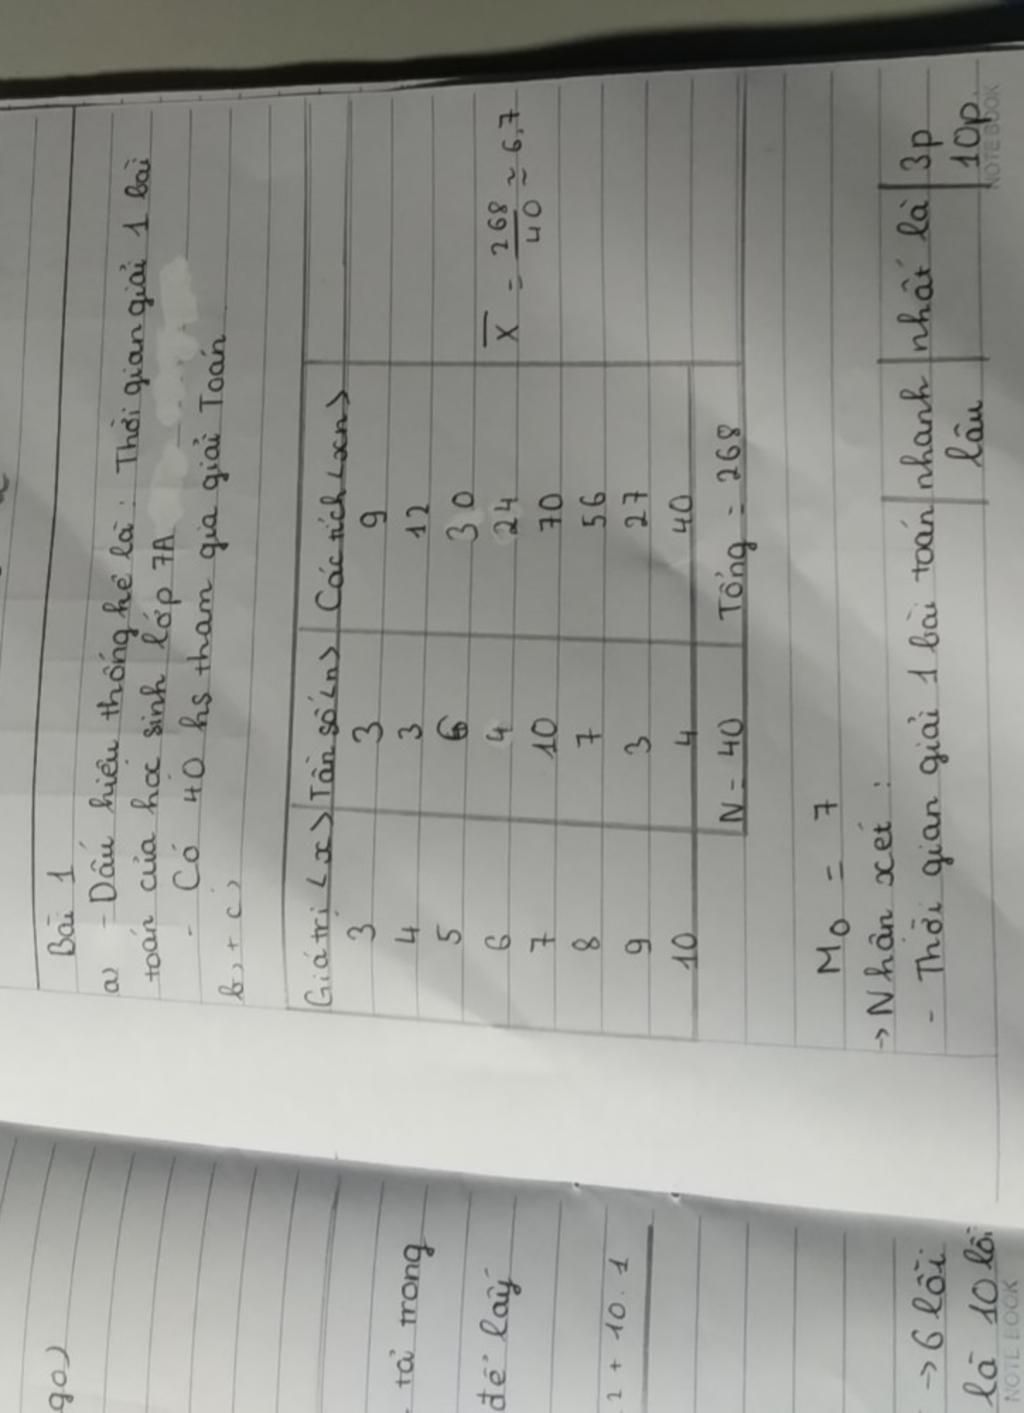 Bài 1
a) - Dấu hiệu thống kê là : Thời gian giải 1 bài
toán của học sinh lớp 7A
- Có 40 hs tham gia giải Toán
b) + c)
Giá trị <x> Tần số <n> Các tích <xn>
3 3 9
4 3 12
5 6 30
6 4 24
7 10 70
8 7 56
9 3 27
10 4 40
N = 40 Tổng = 268
X = 268/40 ≈ 6,7
M0 = 7
→ Nhận xét :
- Thời gian giải 1 bài toán nhanh nhất là 3p
lâu 10p
NOTE BOOK
go)
tả trong
để lấy
2 + 10.1
→ 6 lỗi
là 10 lỗi
NOTE BOOK